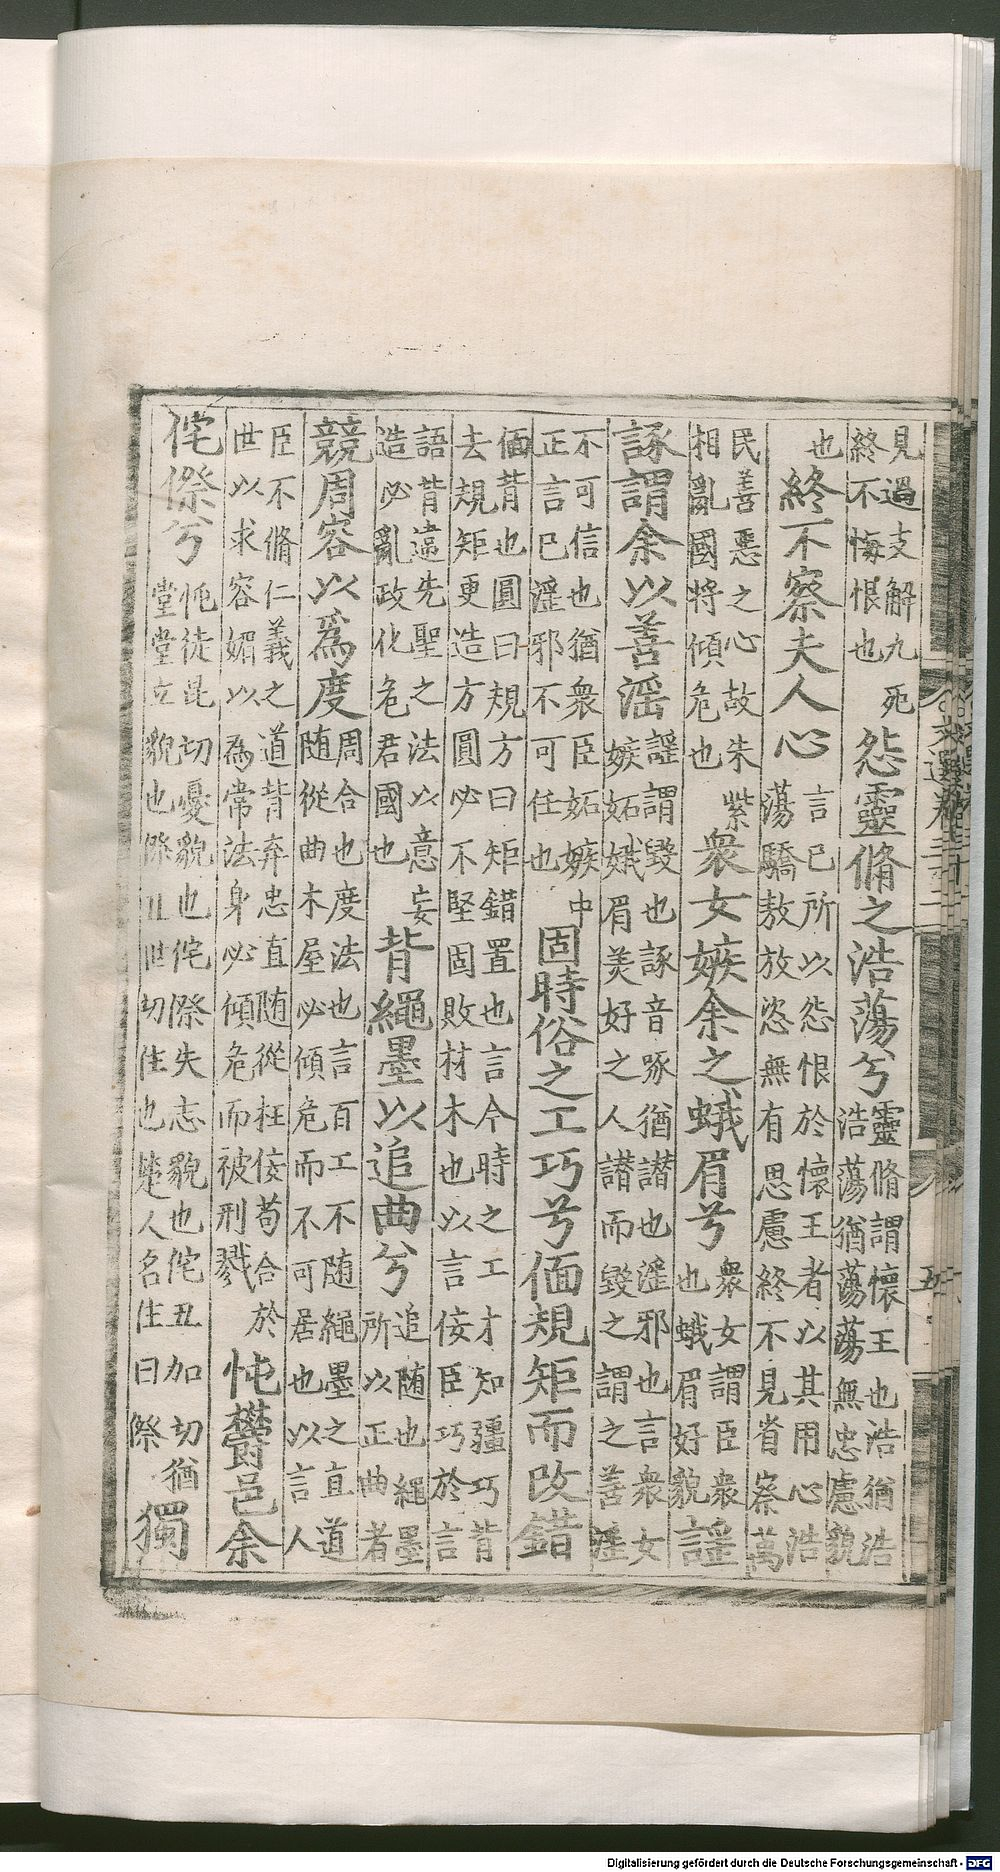 見過支解九死終不悔恨也怨靈脩之浩蕩兮靈脩謂懷王也浩猶浩浩蕩猶蕩蕩無忠慮貌
也終不察夫人心言已所以怨恨於懷王者以其用心浩蕩驕敖放恣無有思慮終不見省察萬
民善惡之心故朱紫相亂國將傾危也衆女嫉余之蛾眉兮衆女謂臣衆也蛾眉好貌謡
諑謂余以善滛謡謂毀也諑音啄猶譖也滛邪也言衆女嫉妬蛾眉美好之人譖而毀之謂之善滛
不可信也猶衆臣妬嫉中正言已滛邪不可任也固時俗之工巧兮偭規矩而改錯
偭背也圓曰規方曰矩錯置也言今時之工才知彊巧背去規矩更造方圓必不堅固敗材木也以言佞臣巧於言
語背違先聖之法以意妄造必亂政化危君國也背繩墨以追曲兮追随也繩墨所以正曲者
競周容以爲度周合也度法也言百工不随繩墨之直道随從曲木屋必傾危而不可居也以言人
臣不脩仁義之道背弃忠直随從枉佞苟合於世以求容媚以為常法身必傾危而被刑戮忳鬱邑余
侘傺兮忳徒昆切憂貌也侘傺失志貌也侘丑加切猶堂堂立貌也傺丑世切住也楚人名住曰傺獨
Digitalisierung gefördert durch die Deutsche Forschungsgemeinschaft - DFG